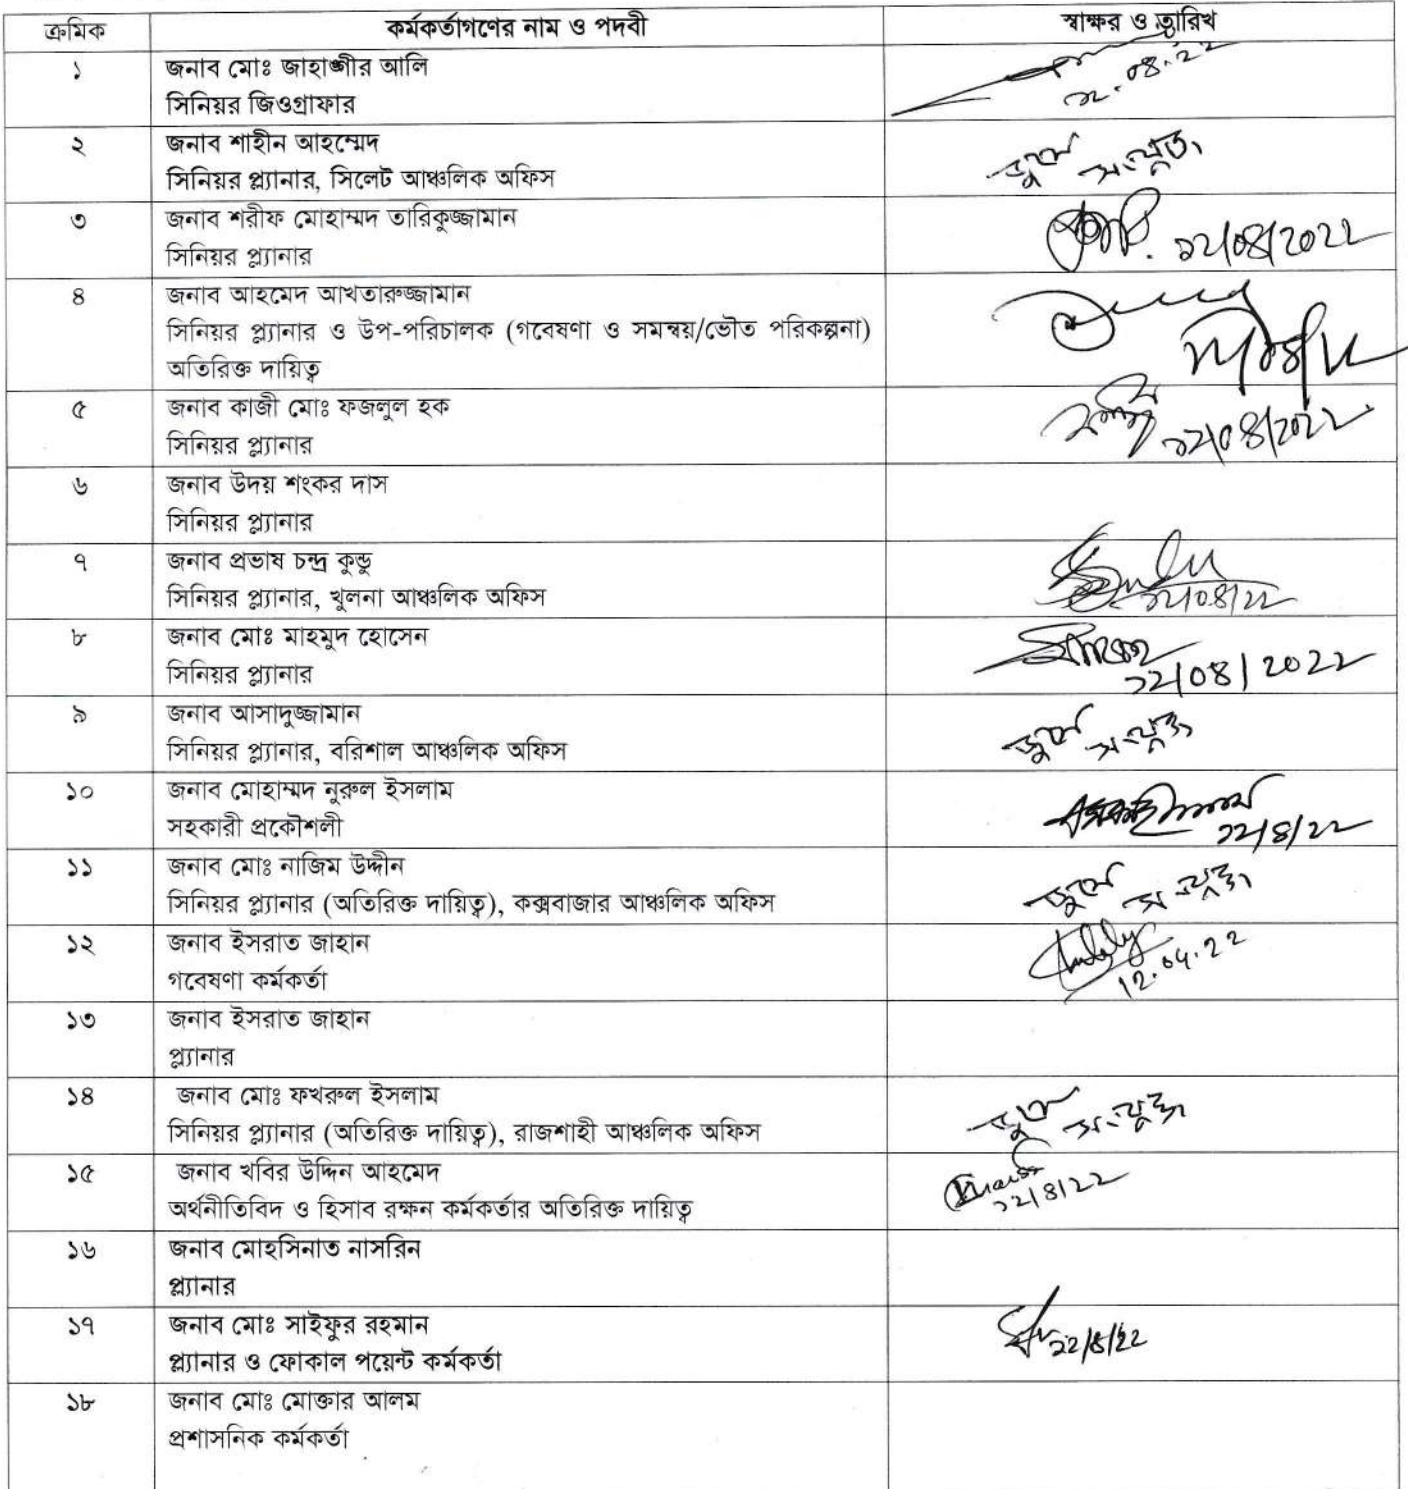 ক্রমিক কর্মকর্তাগণের নাম ও পদবী স্বাক্ষর ও তারিখ
১ জনাব মোঃ জাহাঙ্গীর আলি
সিনিয়র জিওগ্রাফার
২ জনাব শাহীন আহম্মেদ
সিনিয়র প্ল্যানার, সিলেট আঞ্চলিক অফিস
৩ জনাব শরীফ মোহাম্মদ তারিকুজ্জামান
সিনিয়র প্ল্যানার ১২/০৪/2022
৪ জনাব আহমেদ আখতারুজ্জামান
সিনিয়র প্ল্যানার ও উপ-পরিচালক (গবেষণা ও সমন্বয়/ভৌত পরিকল্পনা)
অতিরিক্ত দায়িত্ব
৫ জনাব কাজী মোঃ ফজলুল হক
সিনিয়র প্ল্যানার ১২/০৪/2022
৬ জনাব উদয় শংকর দাস
সিনিয়র প্ল্যানার
৭ জনাব প্রভাষ চন্দ্র কুন্ডু
সিনিয়র প্ল্যানার, খুলনা আঞ্চলিক অফিস ১২/০৪/২২
৮ জনাব মোঃ মাহমুদ হোসেন
সিনিয়র প্ল্যানার ১২/০৪/২০২২
৯ জনাব আসাদুজ্জামান
সিনিয়র প্ল্যানার, বরিশাল আঞ্চলিক অফিস
১০ জনাব মোহাম্মদ নুরুল ইসলাম
সহকারী প্রকৌশলী ১২/৪/২২
১১ জনাব মোঃ নাজিম উদ্দীন
সিনিয়র প্ল্যানার (অতিরিক্ত দায়িত্ব), কক্সবাজার আঞ্চলিক অফিস
১২ জনাব ইসরাত জাহান
গবেষণা কর্মকর্তা 12.04.22
১৩ জনাব ইসরাত জাহান
প্ল্যানার
১৪ জনাব মোঃ ফখরুল ইসলাম
সিনিয়র প্ল্যানার (অতিরিক্ত দায়িত্ব), রাজশাহী আঞ্চলিক অফিস
১৫ জনাব খবির উদ্দিন আহমেদ
অর্থনীতিবিদ ও হিসাব রক্ষন কর্মকর্তার অতিরিক্ত দায়িত্ব ১২/৪/২২
১৬ জনাব মোহসিনাত নাসরিন
প্ল্যানার
১৭ জনাব মোঃ সাইফুর রহমান
প্ল্যানার ও ফোকাল পয়েন্ট কর্মকর্তা ১২/৪/২২
১৮ জনাব মোঃ মোক্তার আলম
প্রশাসনিক কর্মকর্তা